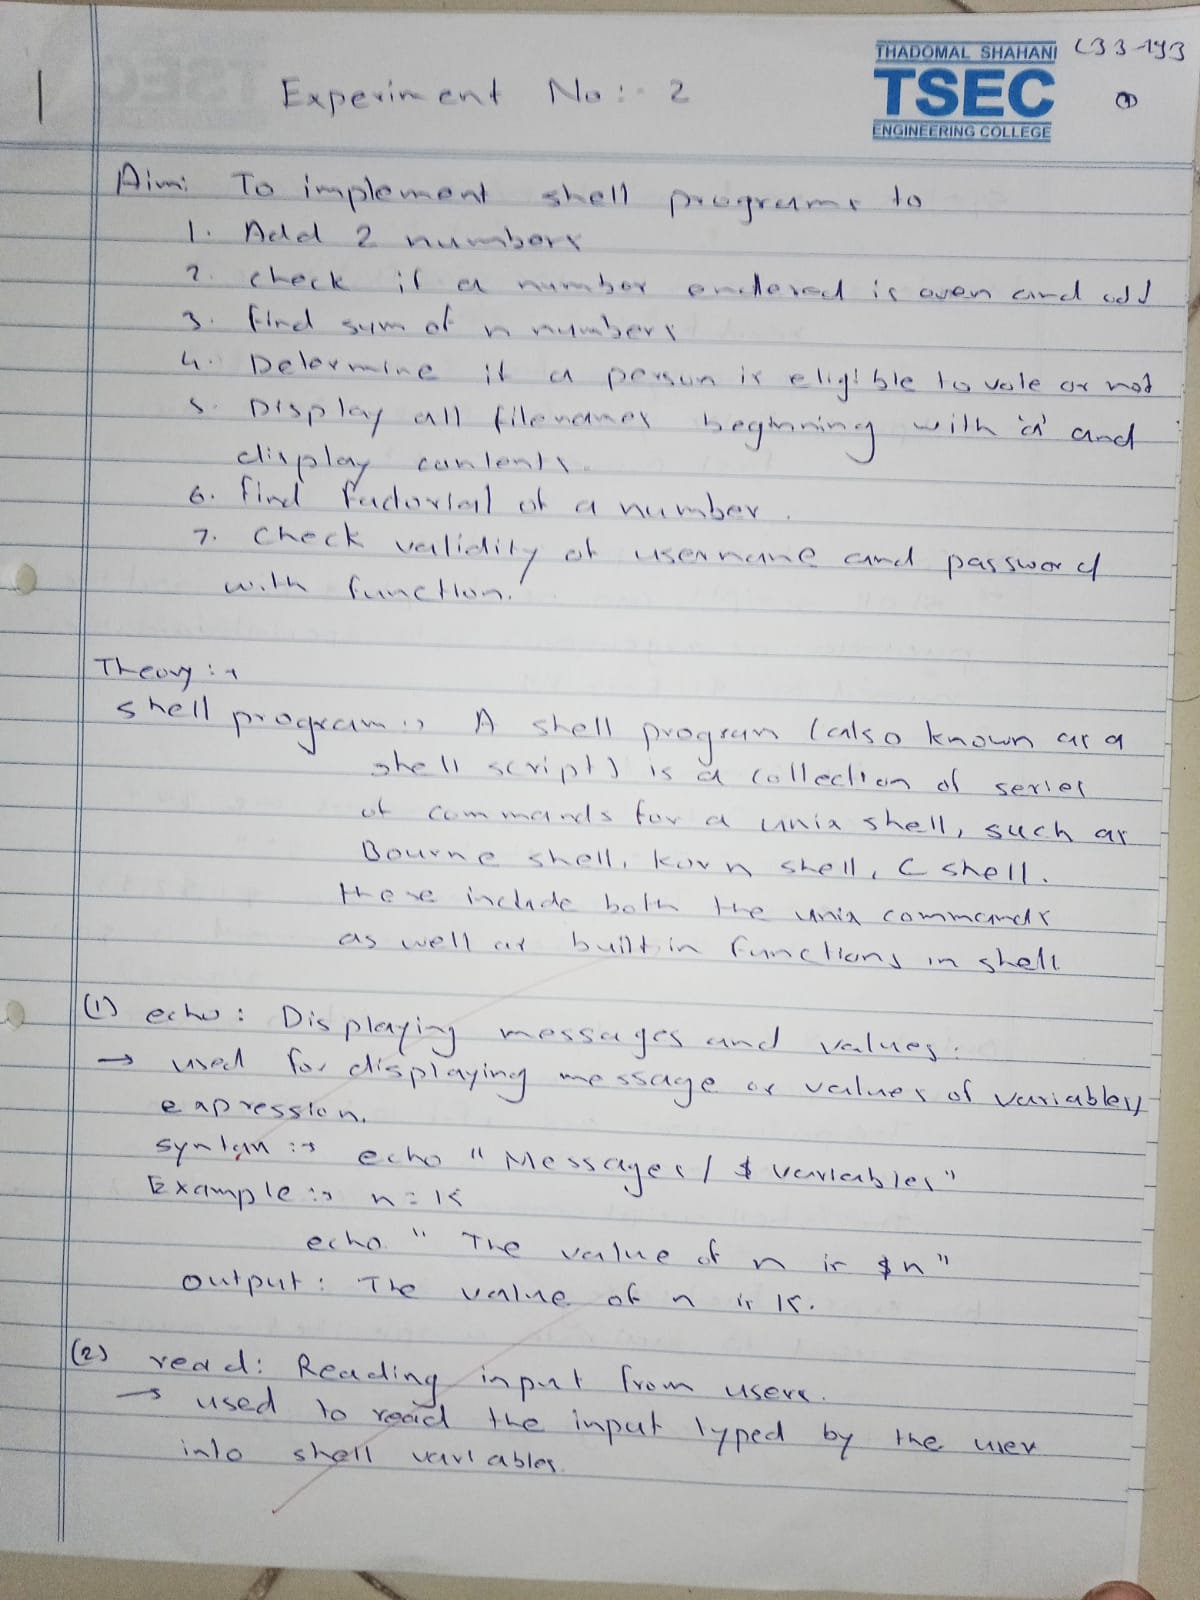 THADOMAL SHAHANI
TSEC
ENGINEERING COLLEGE
C33-193
1
Experiment No:- 2
Aim: To implement shell programs to
1. Add 2 numbers
2. check if a number entered is even and odd
3. find sum of n numbers
4. Determine if a person is eligible to vote or not
5. Display all filenames beginning with 'a' and
display contents.
6. find factorial of a number.
7. Check validity of username and password
with function.
Theory :→
shell program :→ A shell program (also known as a
shell script) is a collection of series
of commands for a unix shell, such as
Bourne shell, korn shell, C shell.
these include both the unix commands
as well as built in functions in shell
(1) echo : Displaying messages and values.
→ used for displaying message or values of variables
expression.
syntax :→ echo "Messages / $ variables"
Example :→ n = 15
echo " The value of n is $n"
output : The value of n is 15.
(2) read: Reading input from users.
→ used to read the input typed by the user
into shell variables.